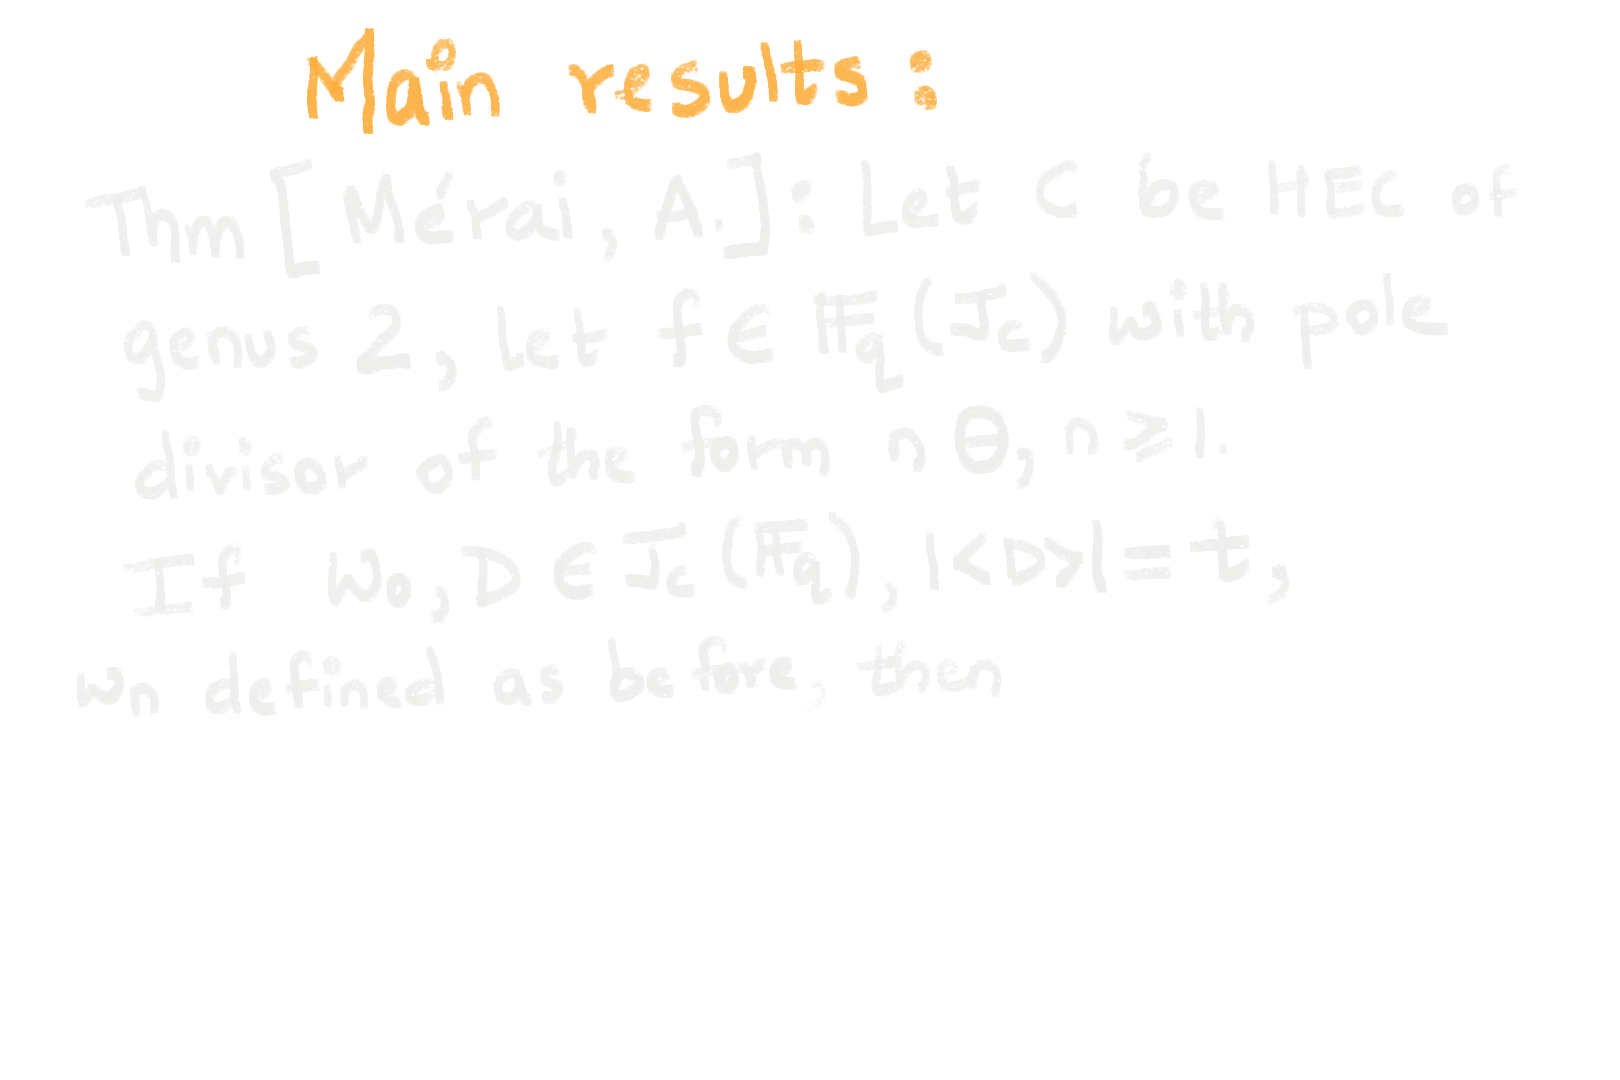 Main results:
Thm [Mérai, A.]: Let C be HEC of
genus 2, let f ∈ 𝔽q (Jc) with pole
divisor of the form n Θ, n ≥ 1.
If Wo, D ∈ Jc (𝔽q), |<D>| = t,
Wn defined as before, then